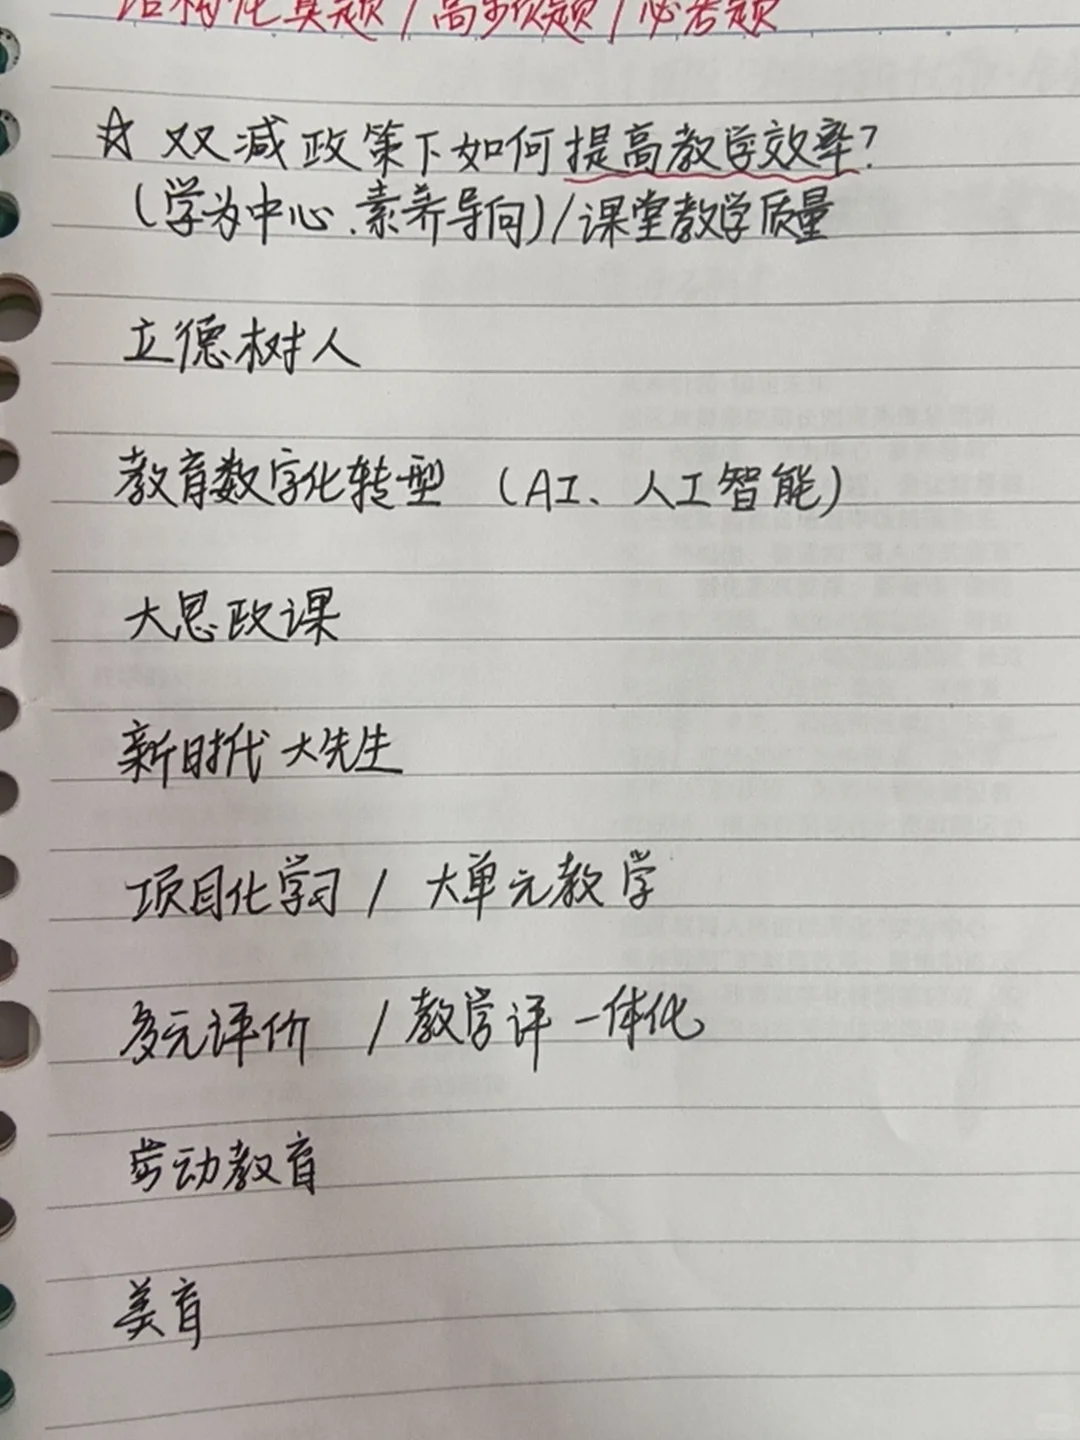 结构化真题/高频题/必考题
☆ 双减政策下如何提高教学效率?
(学为中心.素养导向)/课堂教学质量
立德树人
教育数字化转型 (AI、人工智能)
大思政课
新时代大先生
项目化学习 / 大单元教学
多元评价 / 教学评一体化
劳动教育
美育